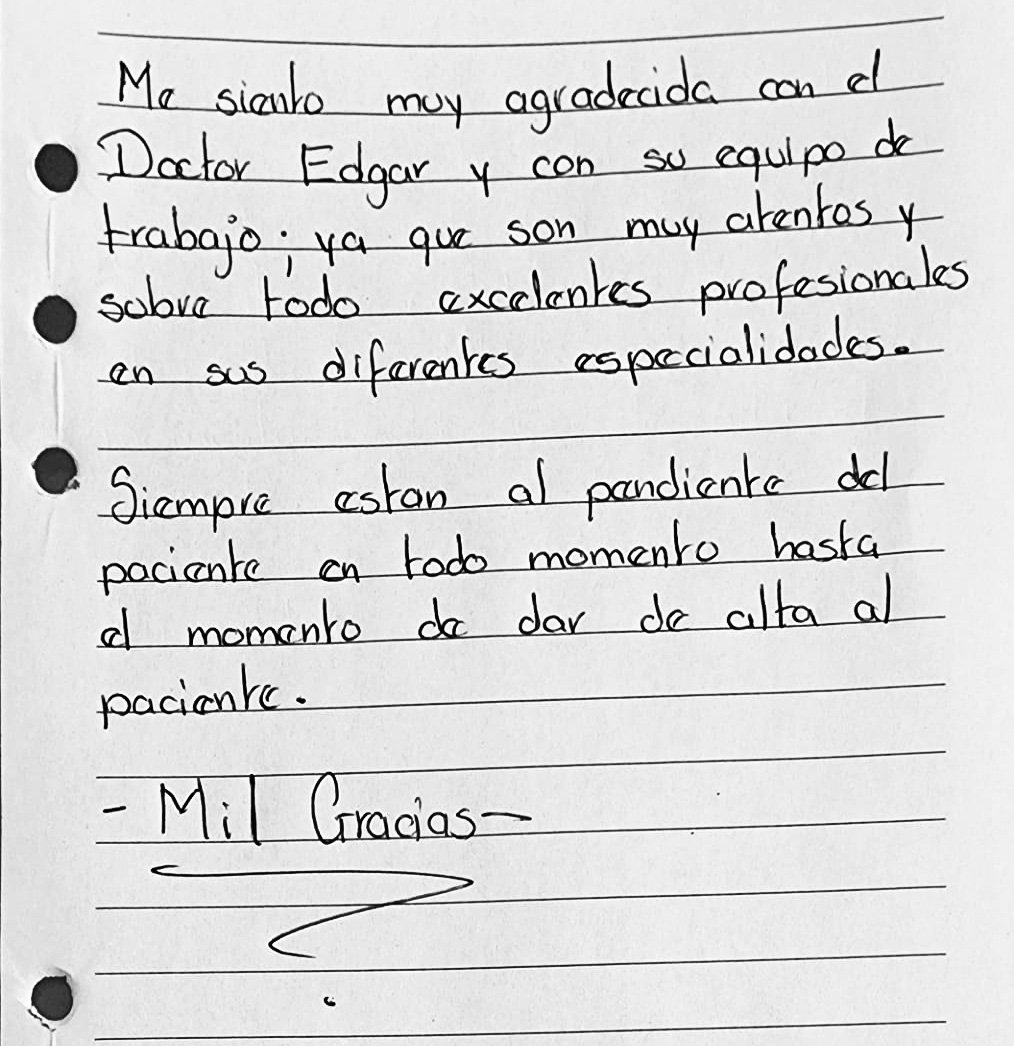 Me siento muy agradecida con el
Doctor Edgar y con su equipo de
trabajo; ya que son muy atentos y
sobre todo excelentes profesionales
en sus diferentes especialidades.
Siempre estan al pendiente del
paciente en todo momento hasta
el momento de dar de alta al
paciente.
- Mil Gracias -